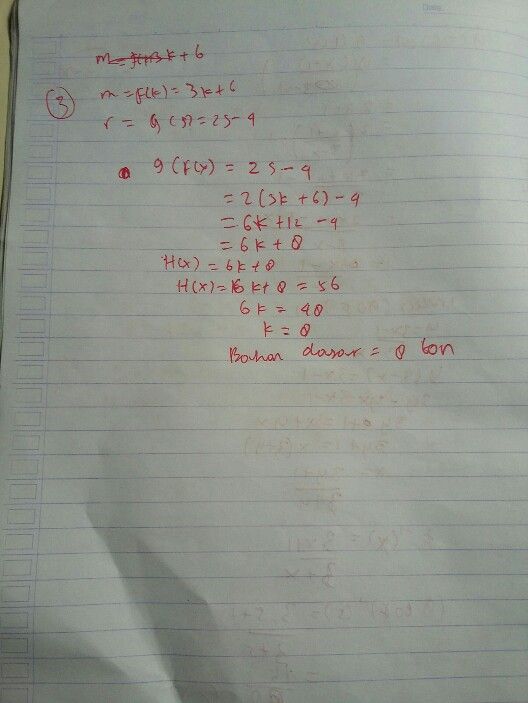 m = f(k) = 3k + 6
③ m = f(k) = 3k + 6
r = g(s) = 2s - 4
g(f(x)) = 2s - 4
= 2(3k + 6) - 4
= 6k + 12 - 4
= 6k + 8
H(x) = 6k + 8
H(x) = 6k + 8 = 56
6k = 48
k = 8
Bahan dasar = 8 ton